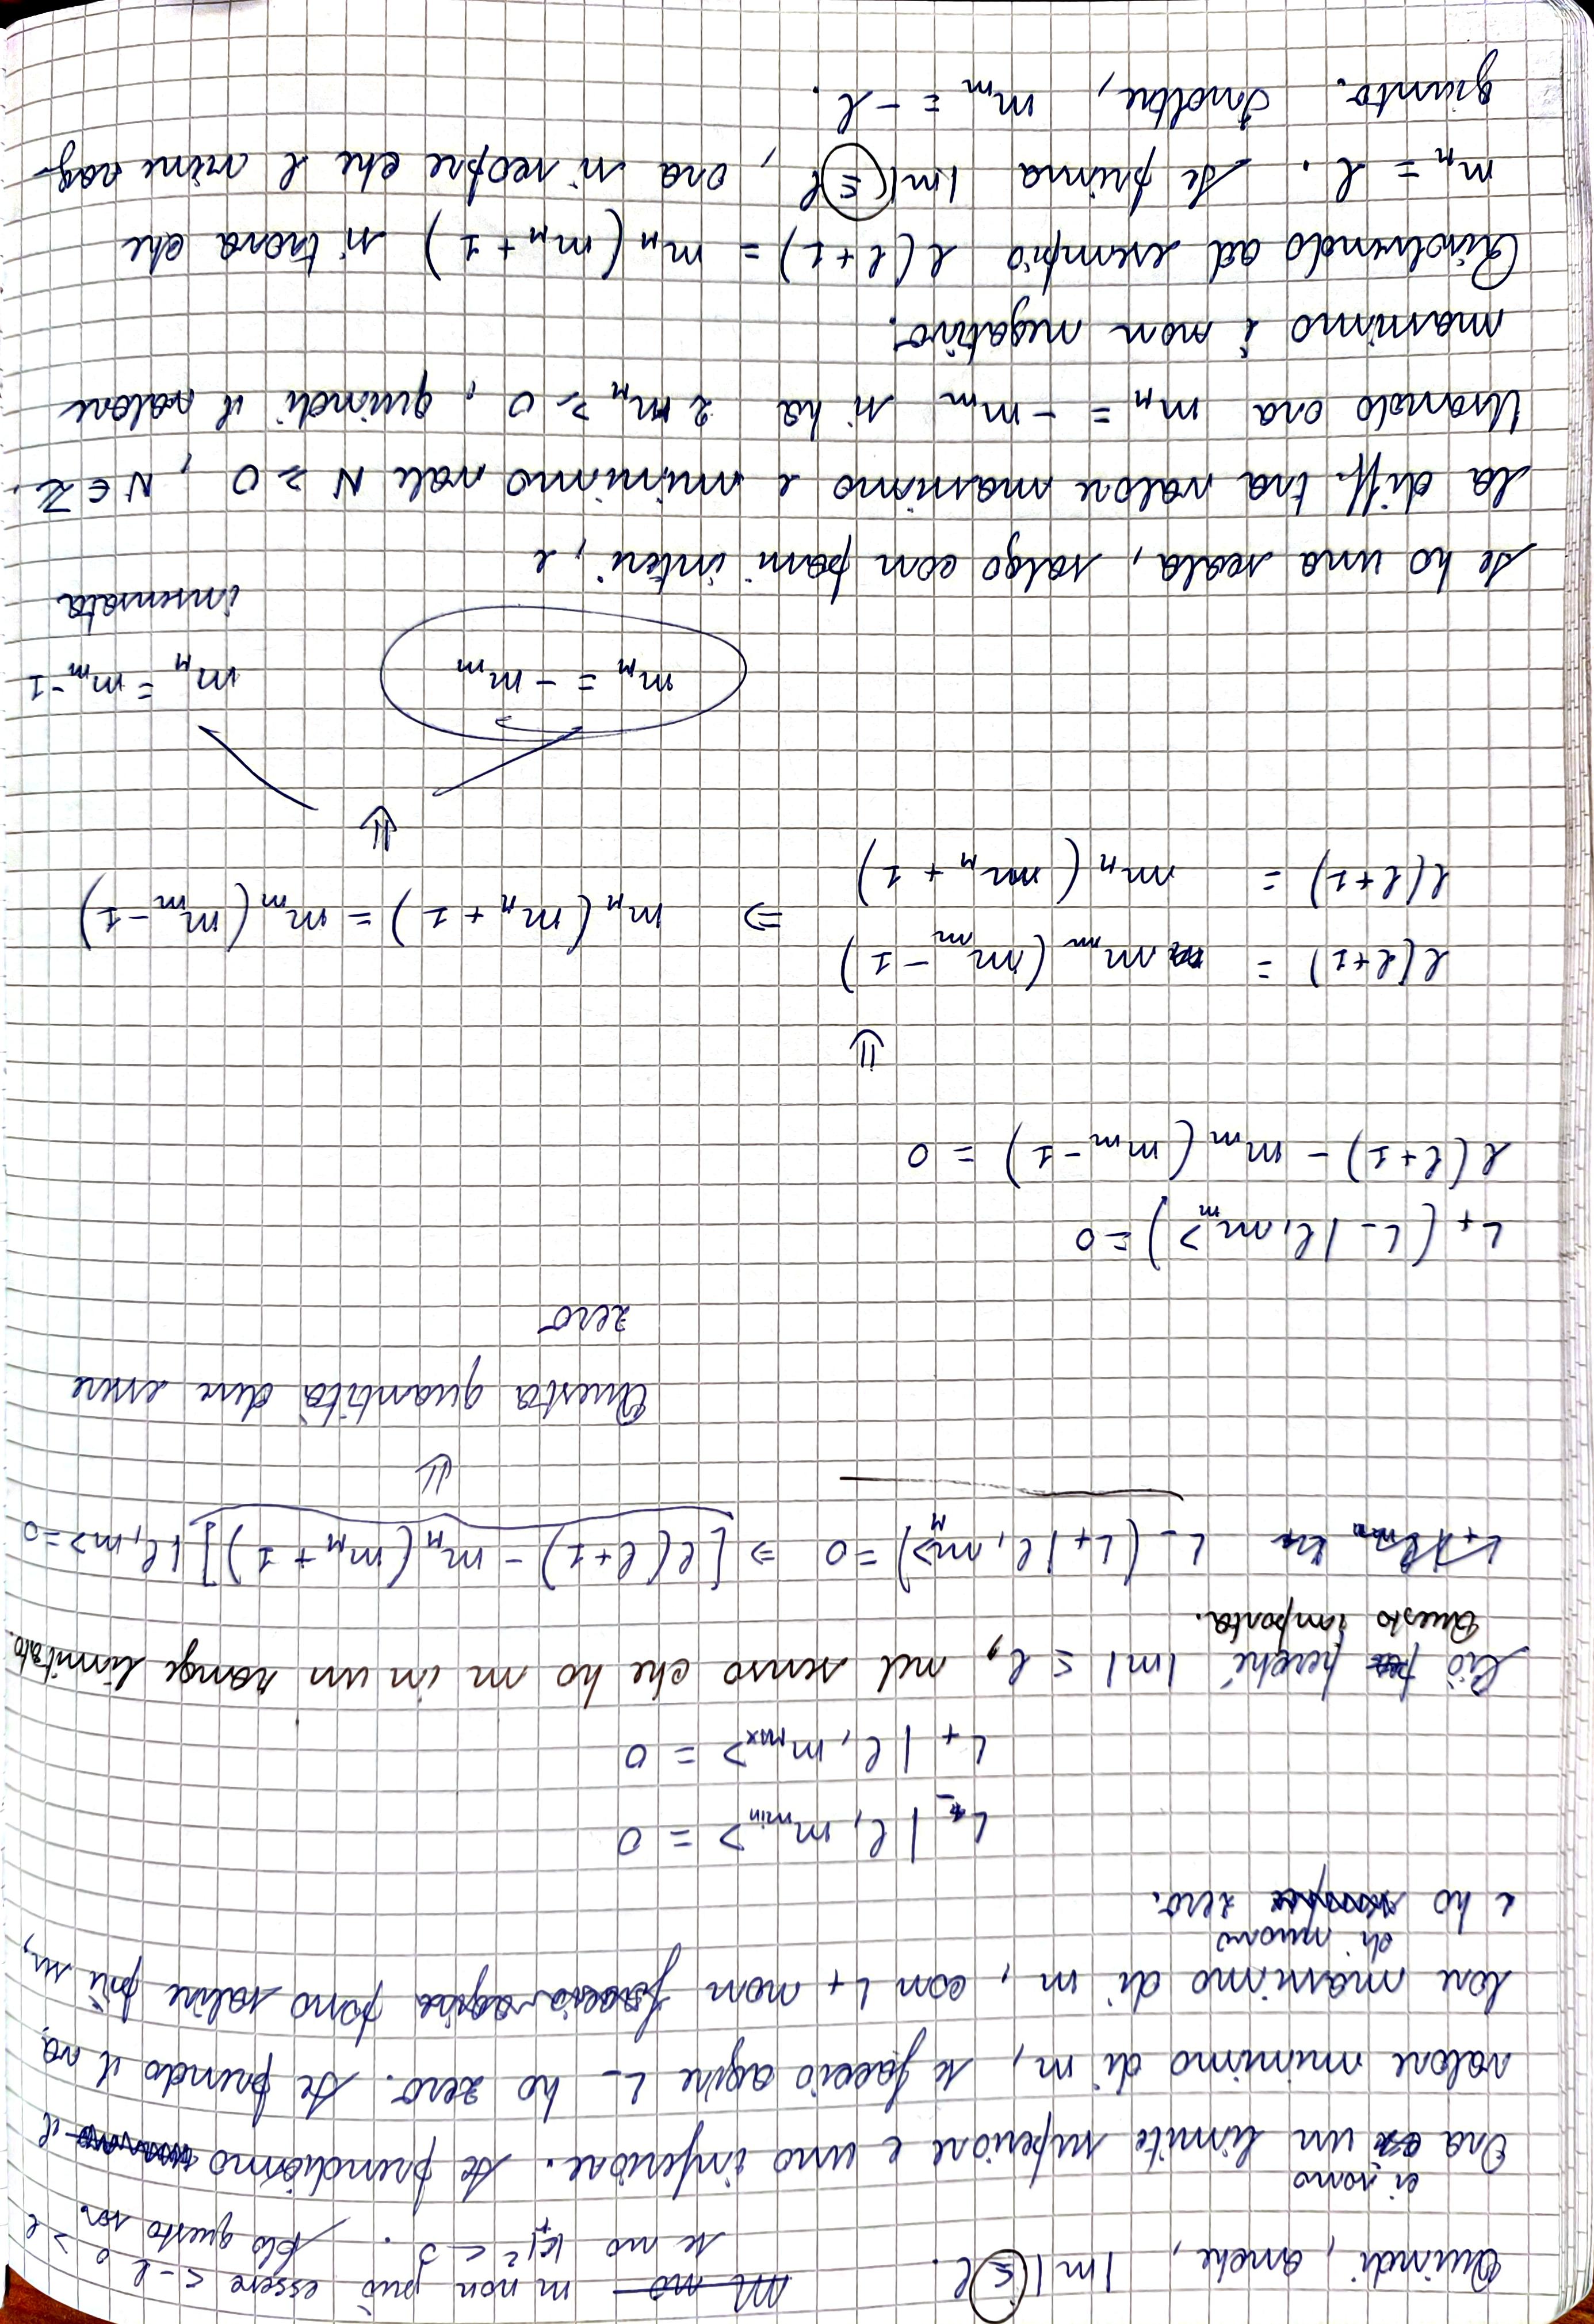 Quindi, anche, |m| ≤ l. m non può essere < -l o > l
se no |c+|² < 0. Solo questo so.
Ora ci sono un limite superiore e uno inferiore. Se prendiamo il
valore minimo di m, se faccio agire L- ho zero. Se prendo il va-
lore massimo di m, con L+ non posso salire più su,
e ho di nuovo zero.
L- |l, m min> = 0
L+ |l, m max> = 0
Ciò perché |m| ≤ l, nel senso che ho m in un range limitato.
Questo importa.
L- (L+ |l, m_M>) = 0 ⇒ [l(l+1) - m_M (m_M + 1)] |l, m> = 0
⇓
Questa quantità deve essere
zero
L+ (L- |l, m_m>) = 0
l(l+1) - m_m (m_m - 1) = 0
⇓
l(l+1) = m_m (m_m - 1)
l(l+1) = m_M (m_M + 1) ⇒ m_M (m_M + 1) = m_m (m_m - 1)
⇓
m_M = - m_m m_M = m_m - 1
insensata
Se ho una scala, salgo con passi interi, e
la diff. tra valore massimo e minimo vale N ≥ 0, N ∈ Z.
Usando ora m_M = - m_m si ha 2 m_M ≥ 0, quindi il valore
massimo è non negativo.
Risolvendo ad esempio l(l+1) = m_M (m_M + 1) si trova che
m_M = l. Se prima |m| ≤ l, ora si scopre che l viene rag-
giunto. Inoltre, m_m = - l.